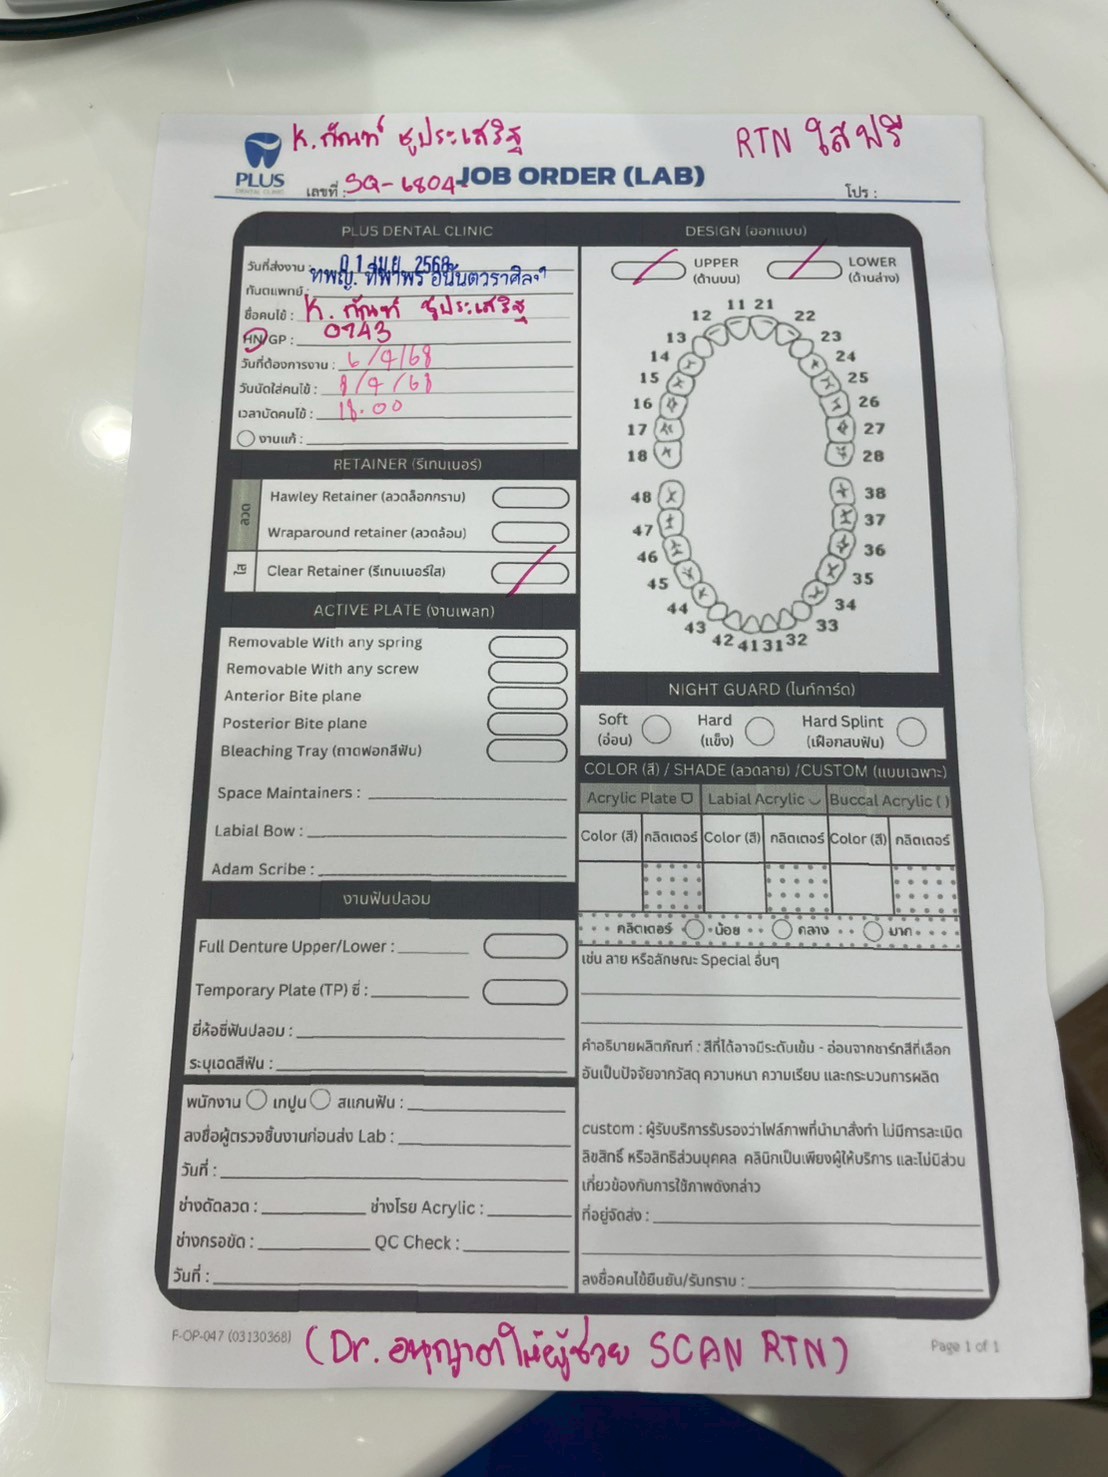 K. กัณฑ์ ชูประเสริฐ
RTN ใสฟรี
PLUS
DENTAL CLINIC
เลขที่ : SQ-6804-
JOB ORDER (LAB)
โปร :
PLUS DENTAL CLINIC
วันที่ส่งงาน : 01 เม.ย. 2568
ทันตแพทย์ : ทพญ. ทิพาพร
ชื่อคนไข้ : K. กัณฑ์ ชูประเสริฐ
HN/GP : 0743
วันที่ต้องการงาน : 6/4/68
วันนัดใส่คนไข้ : 8/4/68
เวลานัดคนไข้ : 18.00
งานแก้ :
RETAINER (รีเทนเนอร์)
ลวด
Hawley Retainer (ลวดล็อกกราม)
Wraparound retainer (ลวดล้อม)
ใส
Clear Retainer (รีเทนเนอร์ใส)
ACTIVE PLATE (งานเพลท)
Removable With any spring
Removable With any screw
Anterior Bite plane
Posterior Bite plane
Bleaching Tray (ถาดฟอกสีฟัน)
Space Maintainers :
Labial Bow :
Adam Scribe :
งานฟันปลอม
Full Denture Upper/Lower :
Temporary Plate (TP) ซี่ :
ยี่ห้อซี่ฟันปลอม :
ระบุเฉดสีฟัน :
พนักงาน เทปูน สแกนฟัน :
ลงชื่อผู้ตรวจชิ้นงานก่อนส่ง Lab :
วันที่ :
ช่างดัดลวด : ช่างโรย Acrylic :
ช่างกรอขัด : QC Check :
วันที่ :
DESIGN (ออกแบบ)
UPPER
(ด้านบน)
LOWER
(ด้านล่าง)
11 21
12 22
13 23
14 24
15 25
16 26
17 27
18 28
48 38
47 37
46 36
45 35
44 34
43 33
42 41 31 32
NIGHT GUARD (ไนท์การ์ด)
Soft
(อ่อน)
Hard
(แข็ง)
Hard Splint
(เฝือกสบฟัน)
COLOR (สี) / SHADE (ลวดลาย) /CUSTOM (แบบเฉพาะ)
Acrylic Plate Labial Acrylic Buccal Acrylic ( )
Color (สี) กลิตเตอร์ Color (สี) กลิตเตอร์ Color (สี) กลิตเตอร์
กลิตเตอร์ น้อย กลาง มาก
เช่น ลาย หรือลักษณะ Special อื่นๆ
คำอธิบายผลิตภัณฑ์ : สีที่ได้อาจมีระดับเข้ม - อ่อนจากชาร์ทสีที่เลือก
อันเป็นปัจจัยจากวัสดุ ความหนา ความเรียบ และกระบวนการผลิต
custom : ผู้รับบริการรับรองว่าไฟล์ภาพที่นำมาสั่งทำ ไม่มีการละเมิด
ลิขสิทธิ์ หรือสิทธิส่วนบุคคล คลินิกเป็นเพียงผู้ให้บริการ และไม่มีส่วน
เกี่ยวข้องกับการใช้ภาพดังกล่าว
ที่อยู่จัดส่ง :
ลงชื่อคนไข้ยืนยัน/รับทราบ :
F-OP-047 (03130368)
(Dr. อนุญาตให้ผู้ช่วย SCAN RTN)
Page 1 of 1